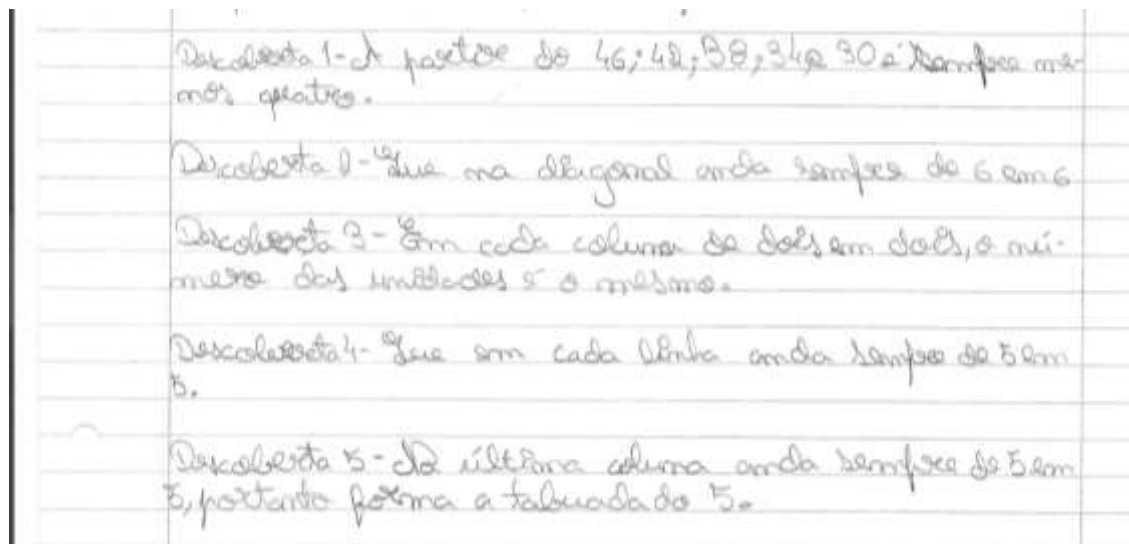 Descoberta 1- A partir do 46; 42; 38; 34 e 30 é sempre me-
nos quatro.
Descoberta 2- Que na diagonal anda sempre de 6 em 6
Descoberta 3- Em cada coluna de dois em dois, o nú-
mero das unidades é o mesmo.
Descoberta 4- Que em cada linha anda sempre de 5 em
5.
Descoberta 5- Na última coluna anda sempre de 5 em
5, portanto forma a tabuada do 5.